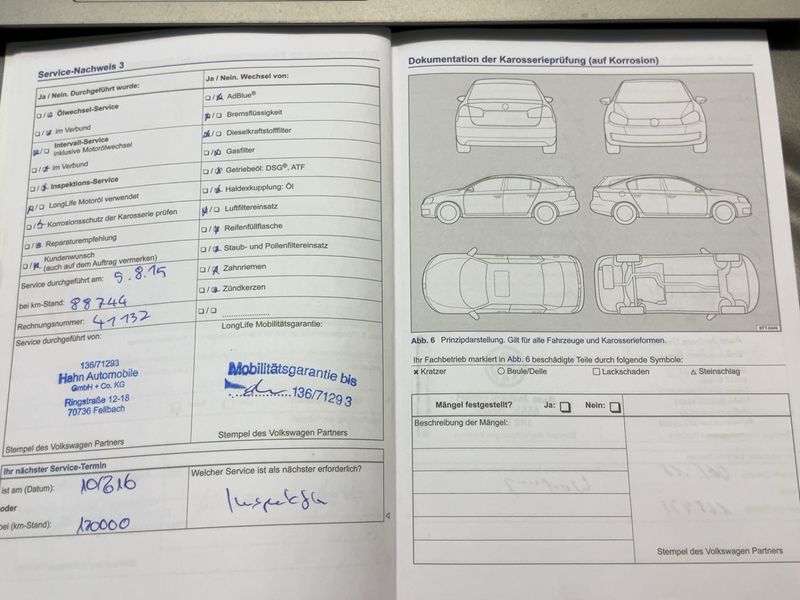 Service-Nachweis 3
Ja / Nein. Durchgeführt wurde:
Ölwechsel-Service
im Verbund
Intervall-Service
inklusive Motorölwechsel
im Verbund
Inspektions-Service
LongLife Motoröl verwendet
Korrosionsschutz der Karosserie prüfen
Reparaturempfehlung
Kundenwunsch
(auch auf dem Auftrag vermerken)
Service durchgeführt am: 9.8.15
bei km-Stand: 88744
Rechnungsnummer: 41132
Service durchgeführt von:
136/71293
Hahn Automobile
GmbH + Co. KG
Ringstraße 12-18
70736 Fellbach
Stempel des Volkswagen Partners
Ja / Nein. Wechsel von:
AdBlue®
Bremsflüssigkeit
Dieselkraftstofffilter
Gasfilter
Getriebeöl: DSG®, ATF
Haldexkupplung: Öl
Luftfiltereinsatz
Reifenfüllflasche
Staub- und Pollenfiltereinsatz
Zahnriemen
Zündkerzen
LongLife Mobilitätsgarantie:
Mobilitätsgarantie bis
136/71293
Stempel des Volkswagen Partners
Ihr nächster Service-Termin
ist am (Datum):
oder
bei (km-Stand): 120000
Welcher Service ist als nächster erforderlich?
Inspektion
Dokumentation der Karosserieprüfung (auf Korrosion)
B7T-0449
Abb. 6 Prinzipdarstellung. Gilt für alle Fahrzeuge und Karosserieformen.
Ihr Fachbetrieb markiert in Abb. 6 beschädigte Teile durch folgende Symbole:
× Kratzer ○ Beule/Delle □ Lackschaden △ Steinschlag
Mängel festgestellt? Ja: □ Nein: □
Beschreibung der Mängel:
Stempel des Volkswagen Partners